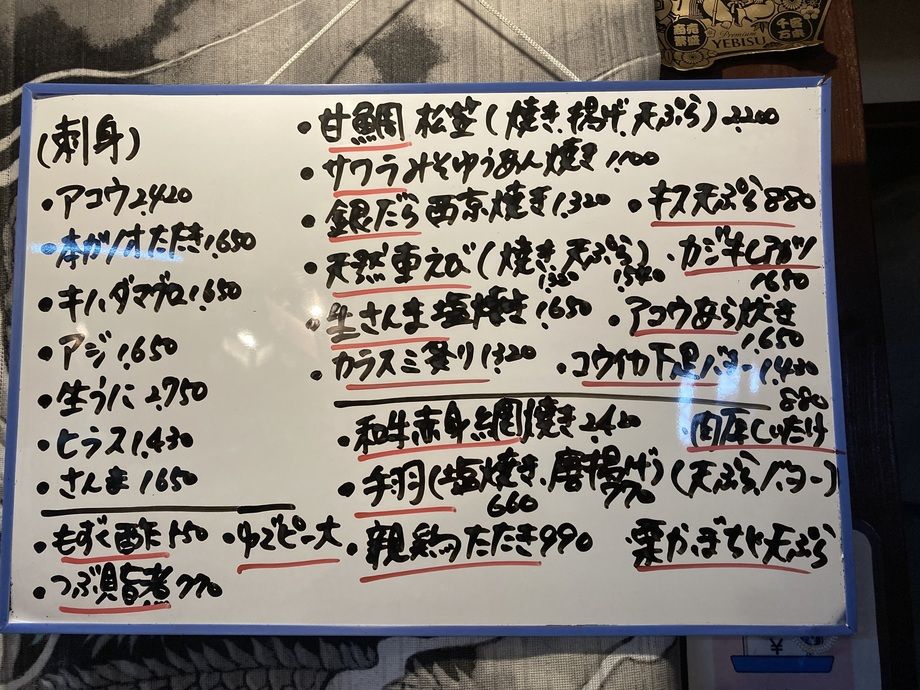 (刺身)
・アコウ 2,420
・本ガツオたたき 1,650
・キハダマグロ 1,650
・アジ 1,650
・生うに 2,750
・ヒラス 1,430
・さんま 1650
・もずく酢 550
・ゆでピー大
・つぶ貝旨煮 770
・甘鯛 松笠(焼き、揚げ、天ぷら) 2,200
・サワラみそゆうあん焼き 1,100
・銀だら西京焼き 1,320
・キス天ぷら 880
・天然車えび(焼き、天ぷら)
1,320 1,540
・カジキレアカツ
1,650
・生さんま塩焼き 1,650
・アコウあら炊き
1,650
・カラスミ炙り 1,320
・コウイカ下足バター 1,430
・和牛赤身網焼き 2,420
880
・肉厚しいたけ
(天ぷら、バター)
・手羽(塩焼き、唐揚げ)
660 770
・親鶏のたたき 990
・栗かぼちゃ天ぷら
商売繁盛
千客万来
Premium
YEBISU
¥